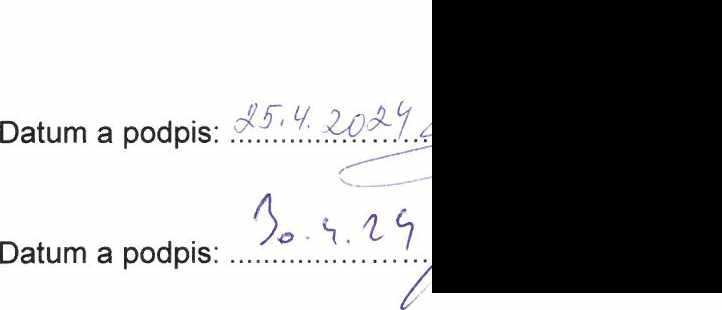 Datum a podpis: 25.4.2024
Datum a podpis: 30.4.24